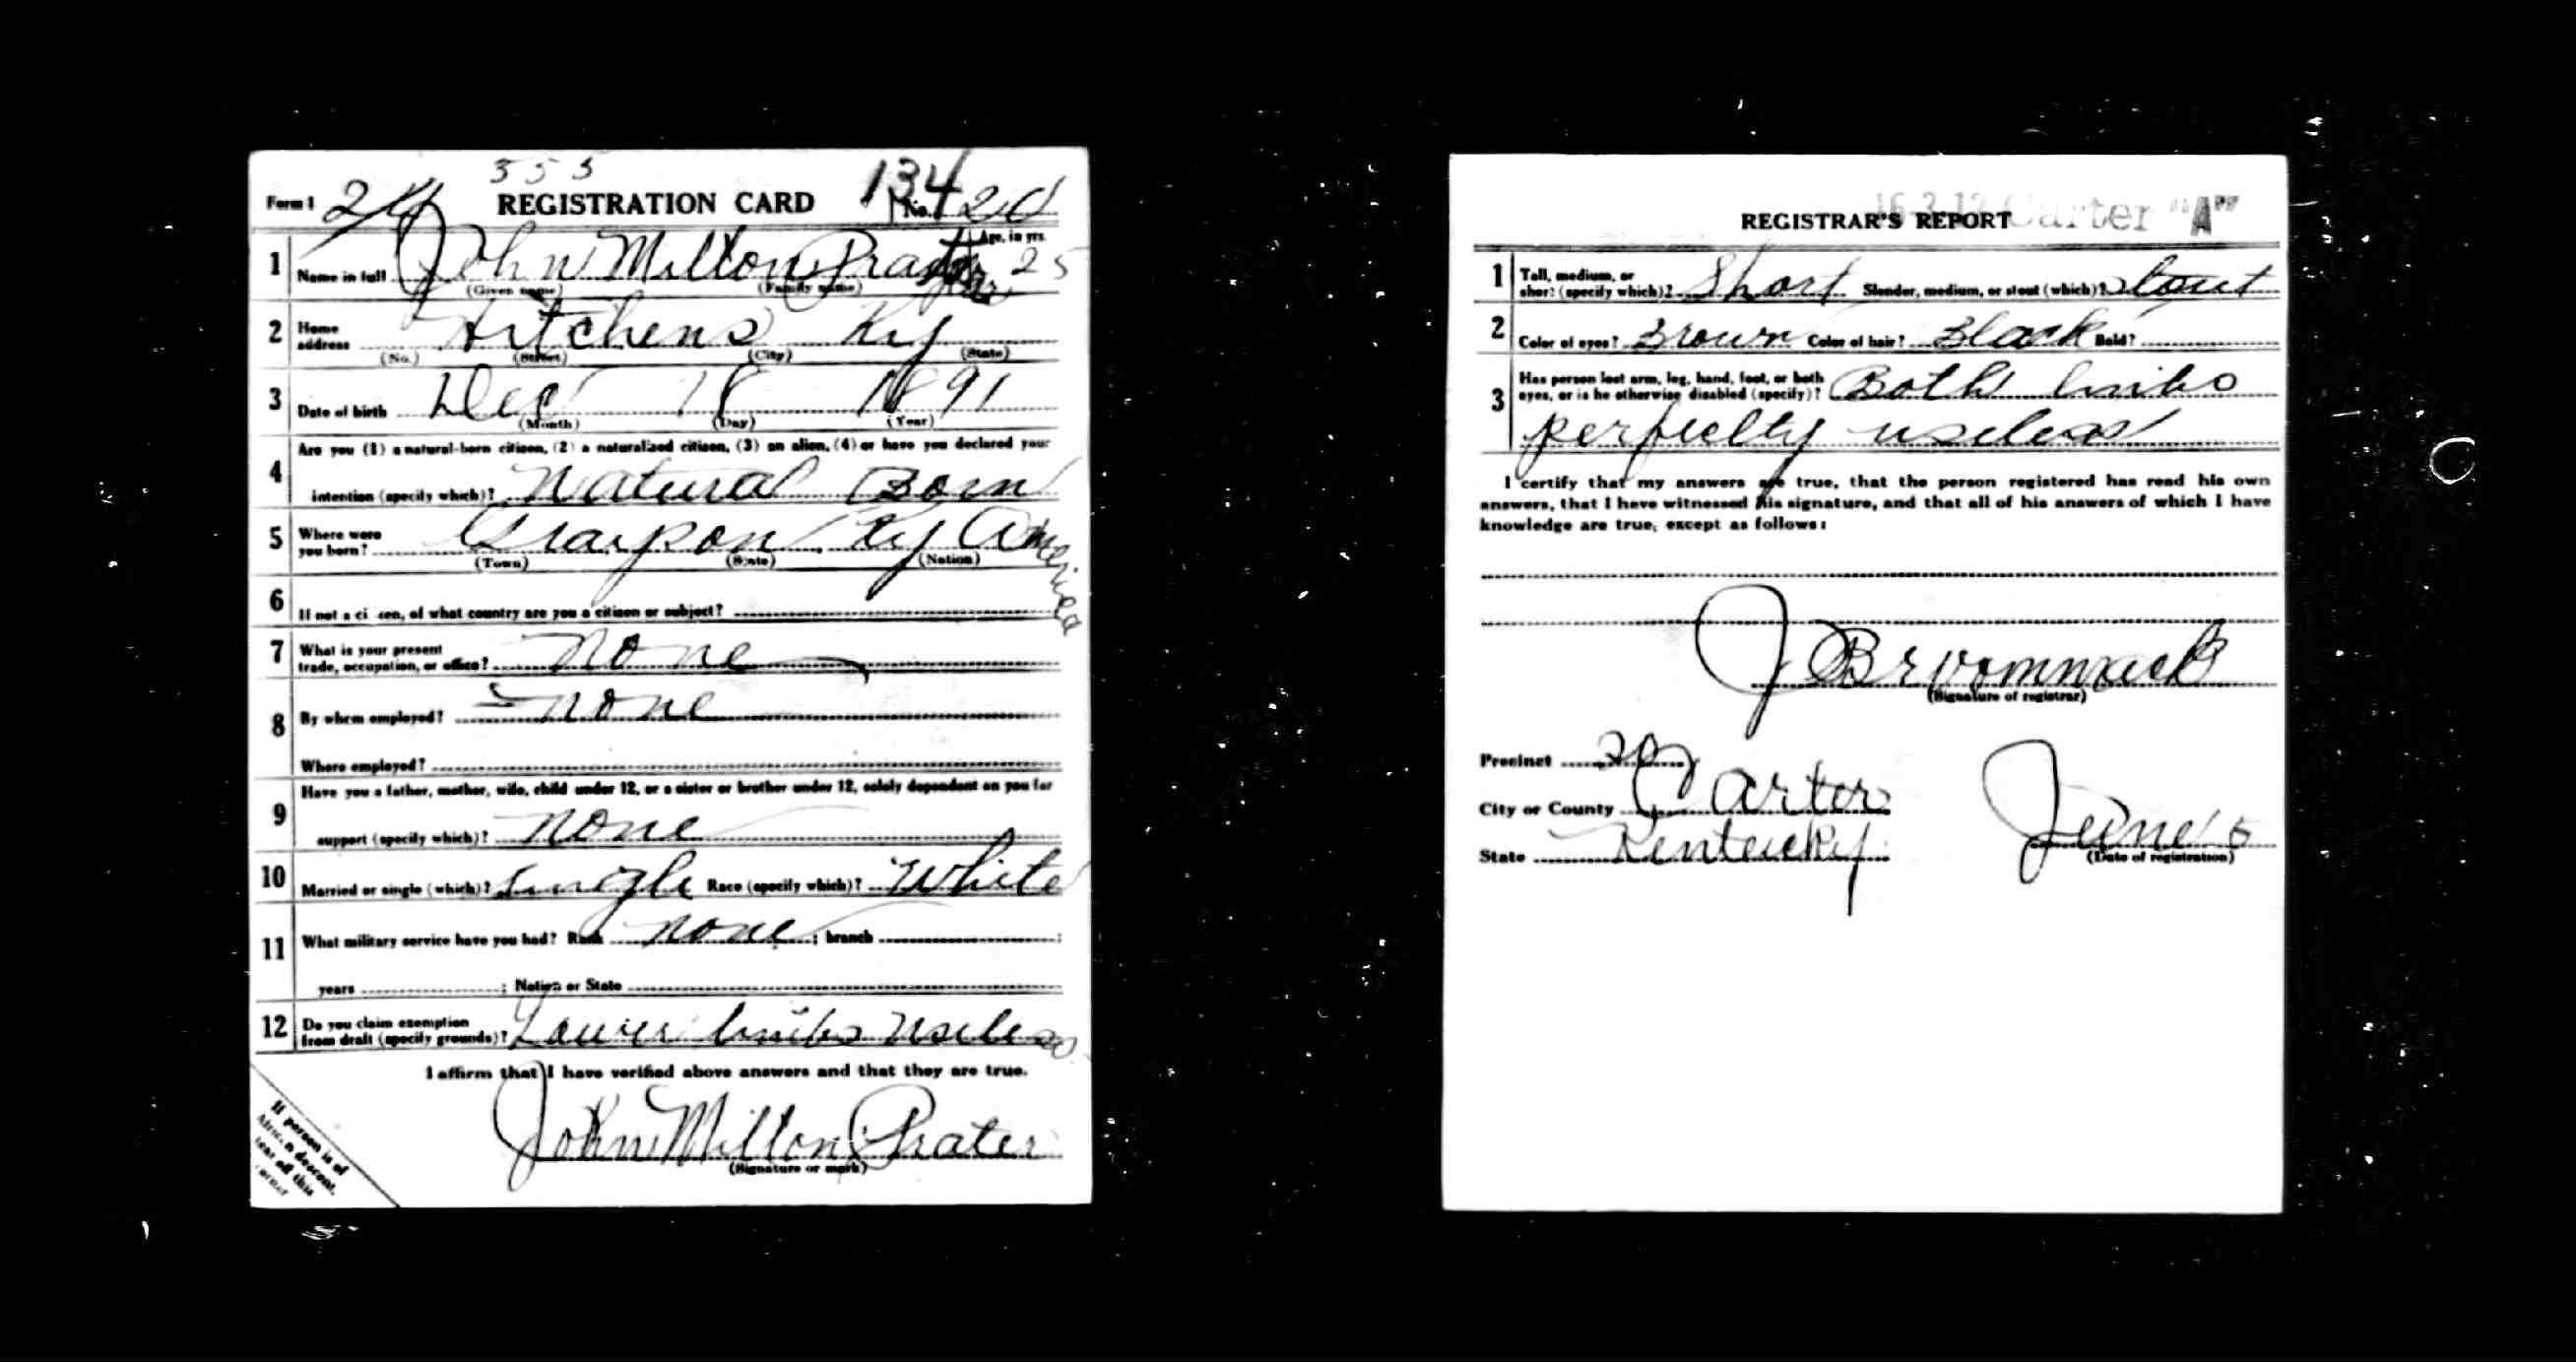 355
Form 1 24 REGISTRATION CARD 134 No. 20
1 Name in full John Milton Prater Age, in yrs. 25
(Given name) (Family name)
2 Home address Hitchens Ky
(No.) (Street) (City) (State)
3 Date of birth Dec 18 1891
(Month) (Day) (Year)
4 Are you (1) a natural-born citizen, (2) a naturalized citizen, (3) an alien, (4) or have you declared your
intention (specify which)? Natural Born
5 Where were you born? Grayson Ky America
(Town) (State) (Nation)
6 If not a citizen, of what country are you a citizen or subject?
7 What is your present trade, occupation, or office? None
8 By whom employed? None
Where employed?
9 Have you a father, mother, wife, child under 12, or a sister or brother under 12, solely dependent on you for
support (specify which)? None
10 Married or single (which)? Single Race (specify which)? White
11 What military service have you had? Rank None ; branch ;
years ; Nation or State
12 Do you claim exemption from draft (specify grounds)? Lower limbs useless
I affirm that I have verified above answers and that they are true.
John Milton Prater
(Signature or mark)
If person is of
African descent,
tear off this
corner
16 3 12 Carter "A"
REGISTRAR'S REPORT
1 Tall, medium, or short (specify which)? Short Slender, medium, or stout (which)? Stout
2 Color of eyes? Brown Color of hair? Black Bald?
3 Has person lost arm, leg, hand, foot, or both eyes, or is he otherwise disabled (specify)? Both limbs
perfectly useless
I certify that my answers are true, that the person registered has read his own
answers, that I have witnessed his signature, and that all of his answers of which I have
knowledge are true, except as follows:
(Signature of registrar)
Precinct 20
City or County Carter
State Kentucky June 5
(Date of registration)